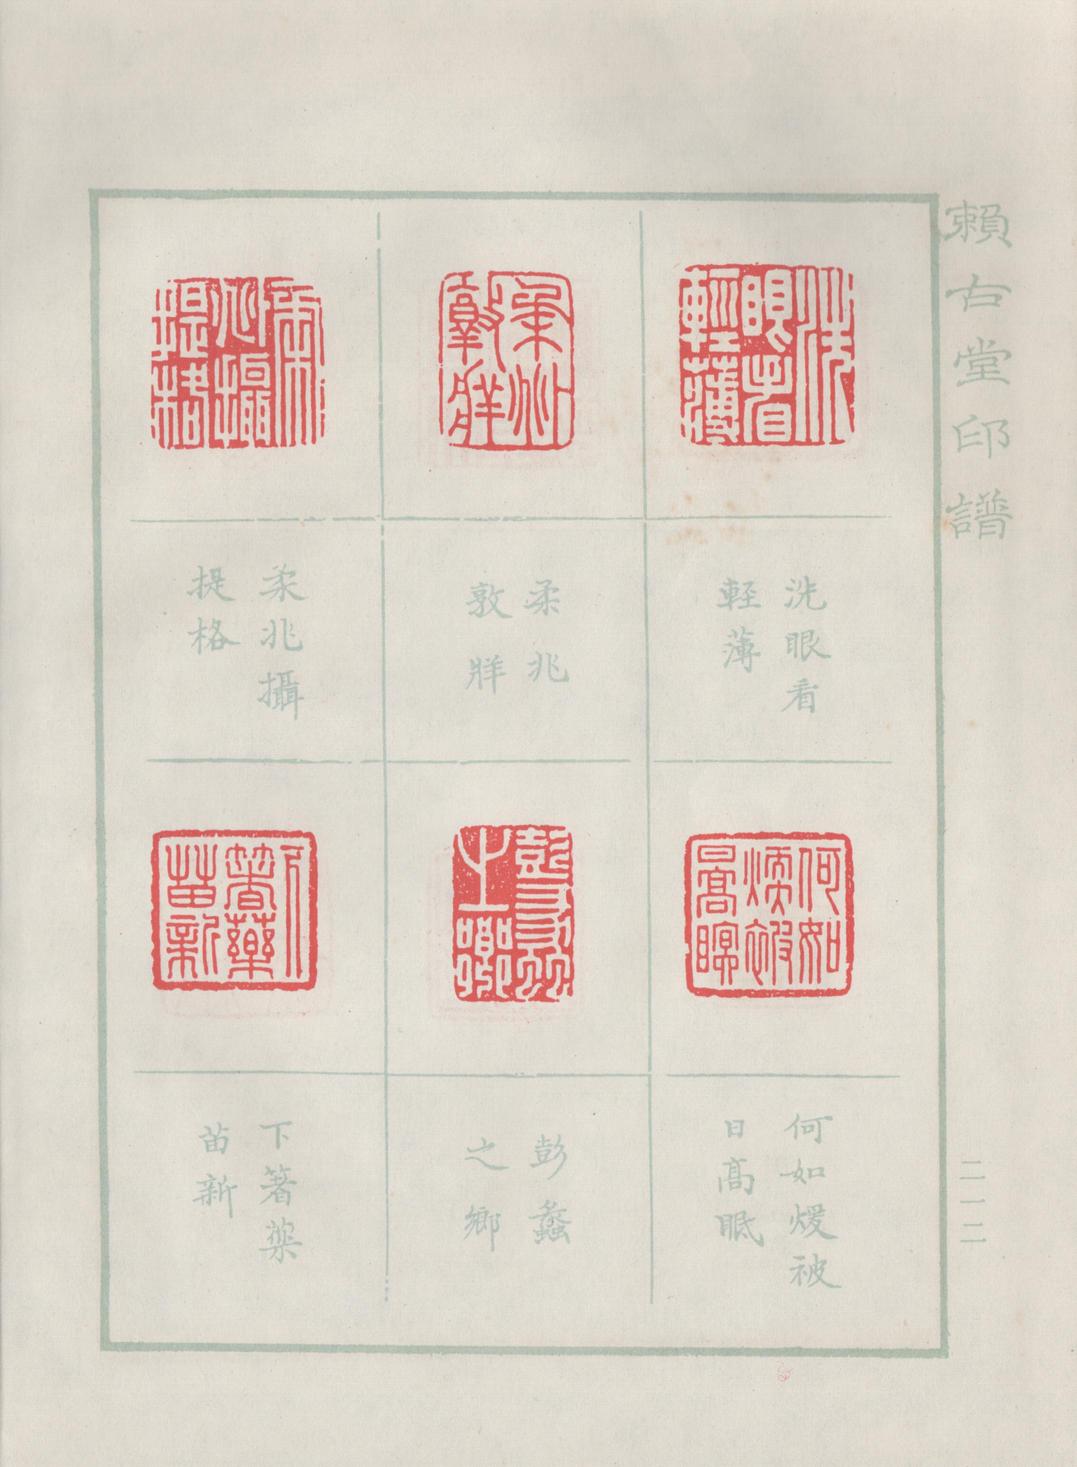 賴古堂印譜
洗眼看
輕薄
柔兆
敦牂
柔兆攝
提格
何如煖被
日高眠
彭蠡
之鄉
下箸藥
苗新
二一二